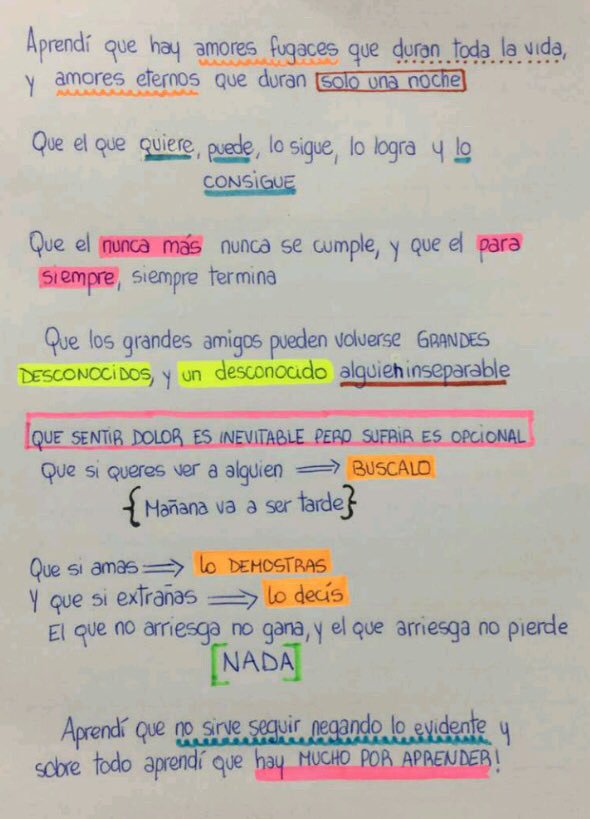 Aprendí que hay amores fugaces que duran toda la vida,
y amores eternos que duran solo una noche
Que el que quiere, puede, lo sigue, lo logra y lo
CONSIGUE
Que el nunca más nunca se cumple, y que el para
siempre, siempre termina
Que los grandes amigos pueden volverse GRANDES
DESCONOCIDOS, y un desconocido alguien inseparable
QUE SENTIR DOLOR ES INEVITABLE PERO SUFRIR ES OPCIONAL
Que si queres ver a alguien ⟹ BUSCALO
{Mañana va a ser tarde}
Que si amas ⟹ lo DEMOSTRAS
Y que si extrañas ⟹ lo decís
El que no arriesga no gana, y el que arriesga no pierde
[NADA]
Aprendí que no sirve seguir negando lo evidente y
sobre todo aprendí que hay MUCHO POR APRENDER!